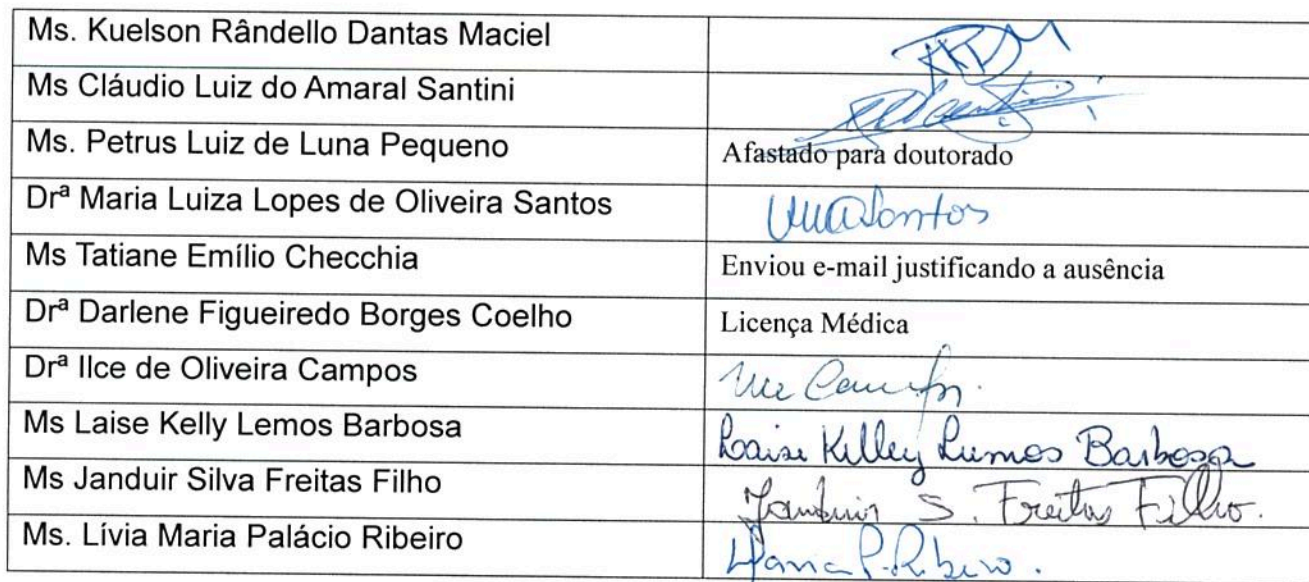 Ms. Kuelson Rândello Dantas Maciel KRDM
Ms Cláudio Luiz do Amaral Santini
Ms. Petrus Luiz de Luna Pequeno Afastado para doutorado
Drª Maria Luiza Lopes de Oliveira Santos Santos
Ms Tatiane Emílio Checchia Enviou e-mail justificando a ausência
Drª Darlene Figueiredo Borges Coelho Licença Médica
Drª Ilce de Oliveira Campos
Ms Laise Kelly Lemos Barbosa Laise Kelley Lemos Barbosa
Ms Janduir Silva Freitas Filho Janduir S. Freitas Filho.
Ms. Lívia Maria Palácio Ribeiro P. Ribeiro.